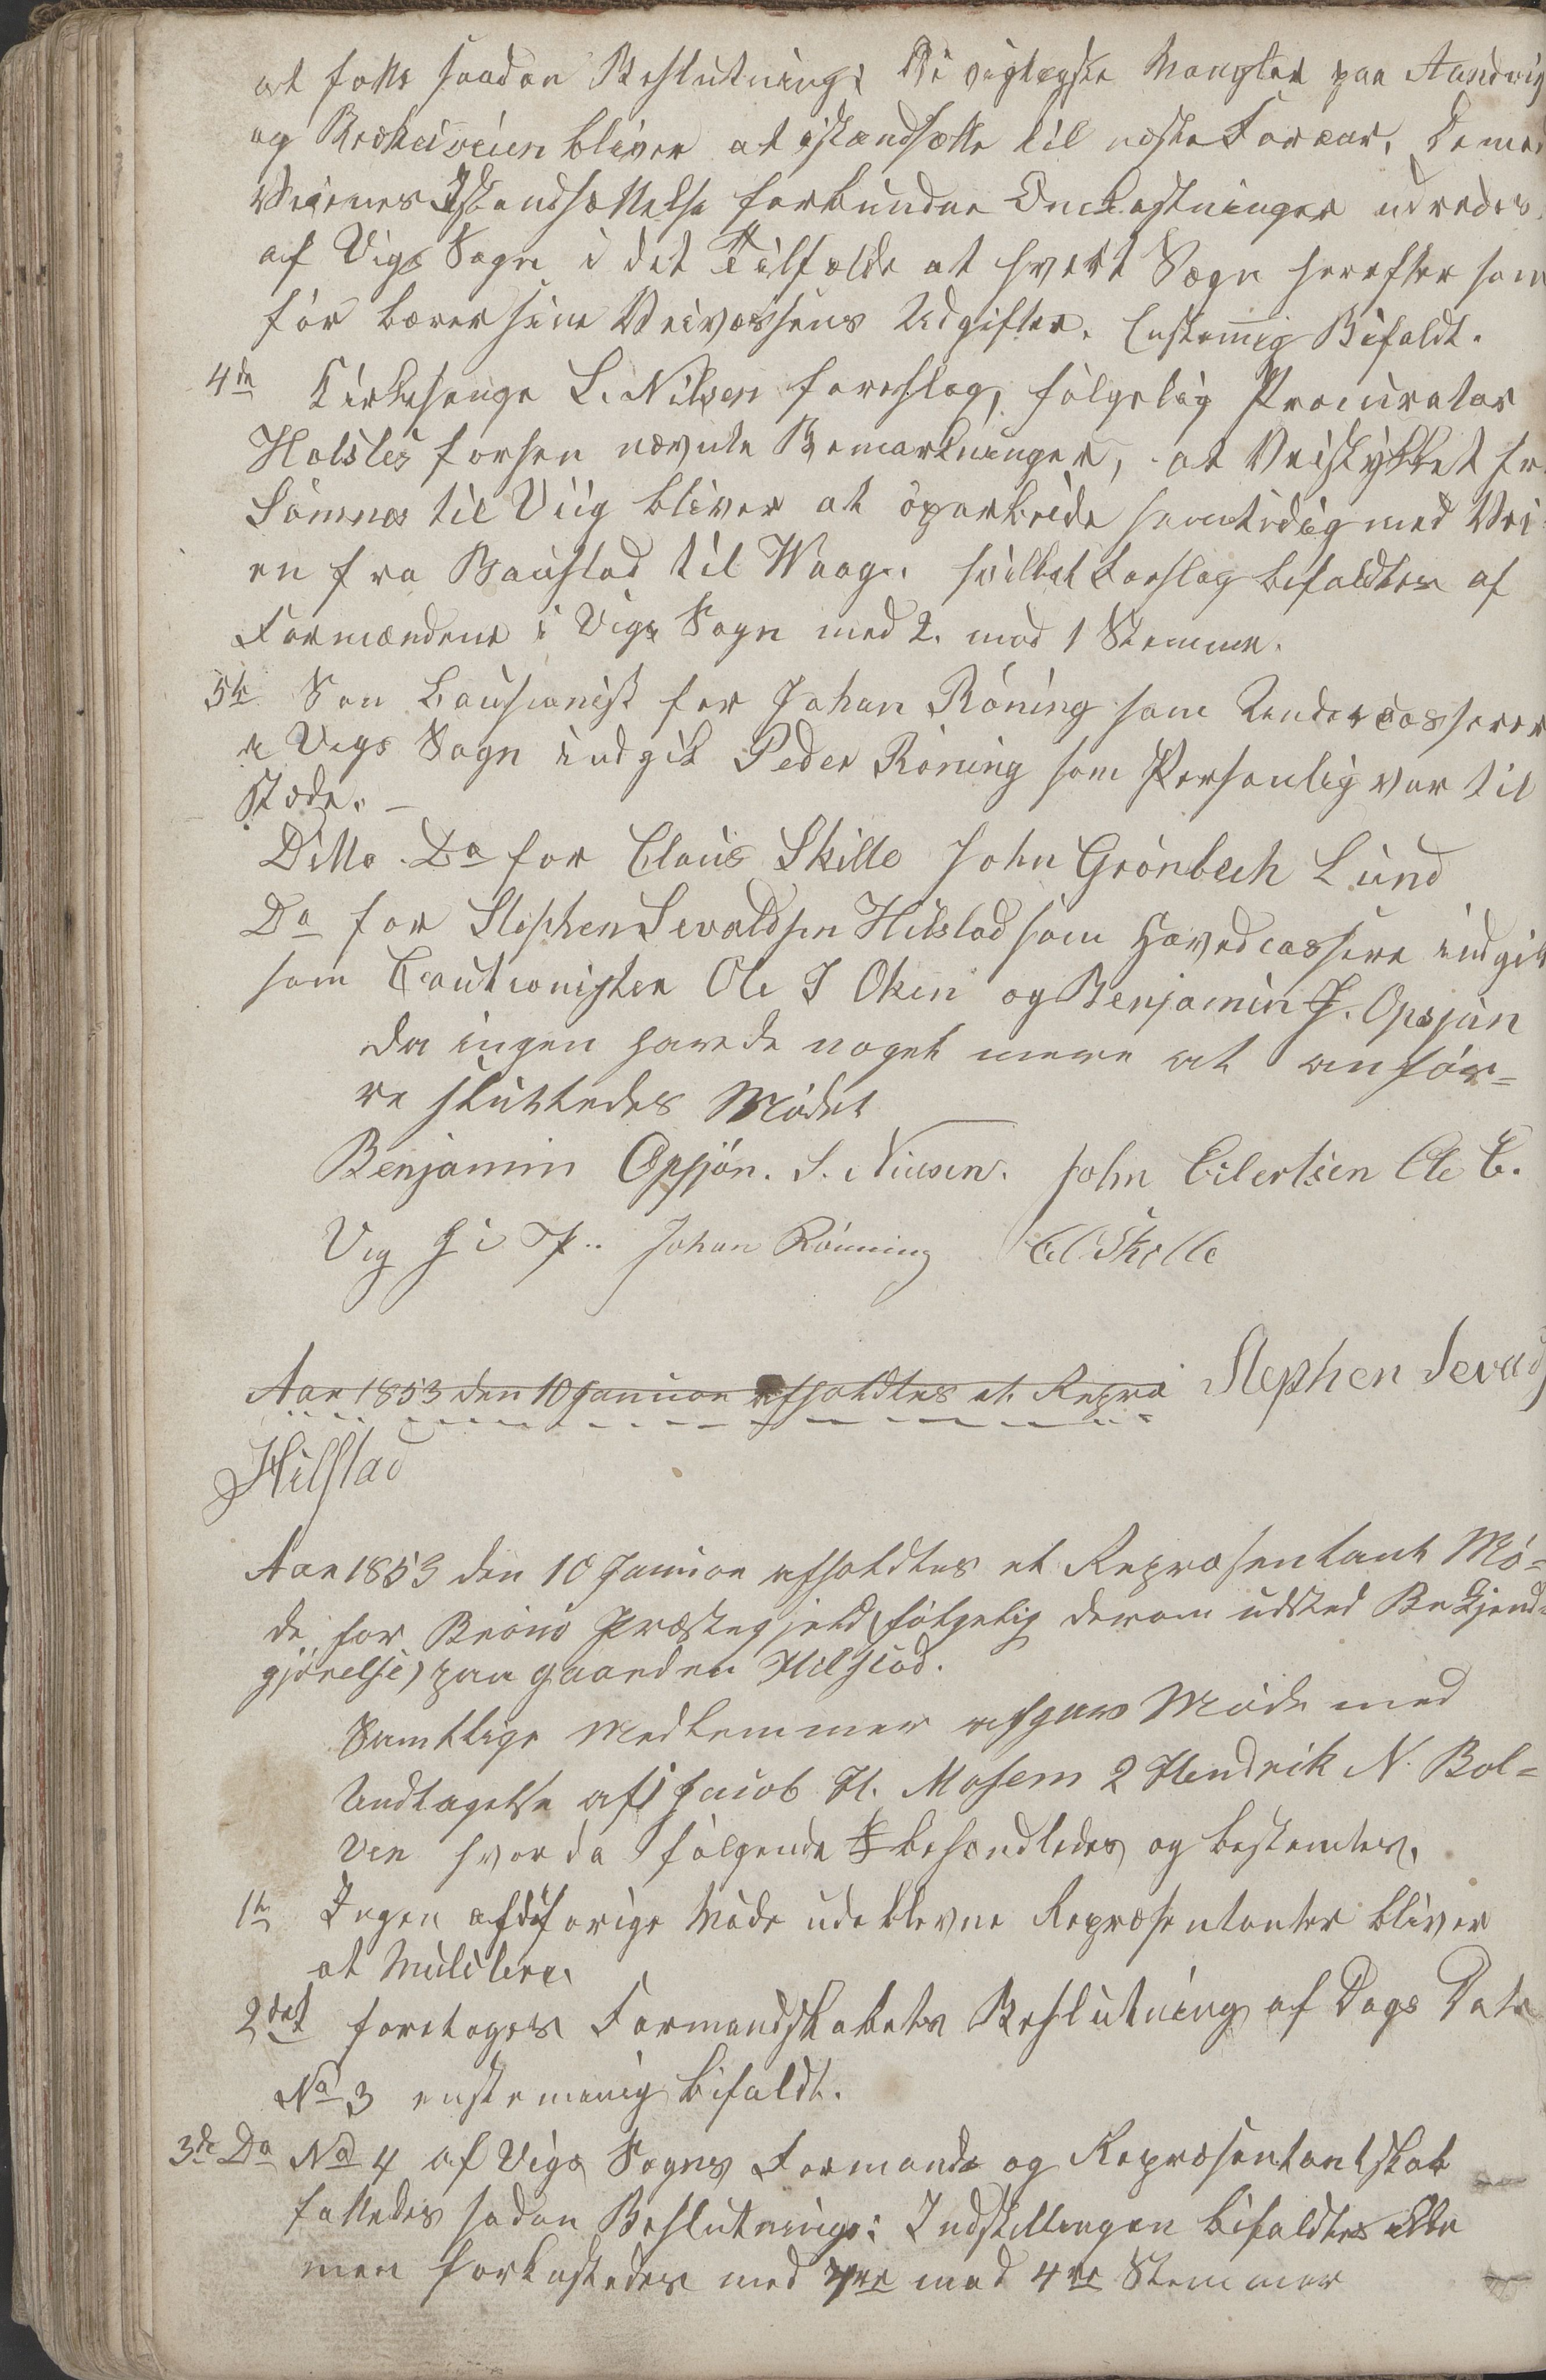 at fatte saadan Beslutning: De vigtigste Mangler paa Aandvig
og Brekkeiveien bliver at istandsætte til næste Foraar. De med
Veienes Istandsættelse forbundne Omkostninger udredes
af Vigs Sogn i det Tilfælde at hvert Sogn herefter som
før bærer sine Veivæsens Udgifter. Enstemig Bifaldt.
4de Kirkesanger L. Nilsen foreslog, følgelig Procurator
Holsles forhen nævnte Bemærkninger, at Veistykket fra
Sømnæs til Viig bliver at oparbeide samtidig med Vei-
en fra Baustad til Waag. hvilket Forslag bifaldtes af
Formændene i Vigs Sogn med 2. mod 1 Stemme.
5te Som Causionist for Johan Röning som Undercasserer
i Vigs Sogn indgik Peder Röning som Personlig var til
stede. –
Ditto Do for Claus Skille John Grønbech Lund
Do for Stephen Sevaldsen Hilstad som Hovedcassere indgik
som Cautionister Ole J Oken og Benjamin J. Opsjøn
da ingen havde noget mere at anfør=
re sluttedes Mødet
Benjamin Opsjön. S. Nilsen. John Eilertsen Ole E.
Vig J i P.. Johan Rönning Cl Skille
Aar 1853 den 10 Januar afholdtes et Repræ Stephen Sevald
Hilstad
Aar 1853 den 10 Januar afholdtes et Repræsentant Mø=
de for Brönö Præstegjeld (følgelig derom udsted Bekjend=
gjørelse) paa gaarden Hilstad.
Samtlige Medlemmer afgav Møde med
Undtagelse af 1 Jacob H. Mosem 2 Hendrik N. Bol=
ven hvor da følgende behandledes og bestemtes.
1te Ingen af de i forige Møde udeblevne Repræsentanter bliver
at Mulctere.
2det foretoges Formandskabets Beslutning af Dags Dato
No 3 enstemmig bifaldt.
3de Do No 4 af Vigs Sogns Formands og Repræsentantskab
fattedes sadan Beslutning: Indstillingen bifaldtes ikke
men forkastedes med 7ve mod 4re Stemmer